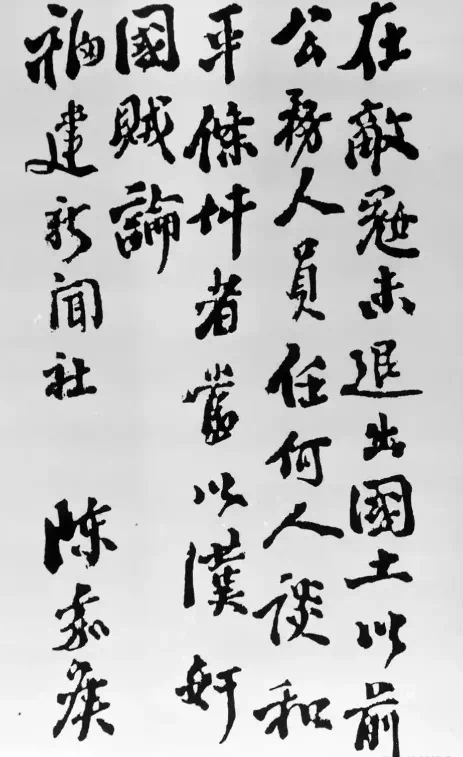 在敵寇未退出國土以前
公務人員任何人談和
平條件者當以漢奸
國賊論
福建新聞社 陳嘉庚